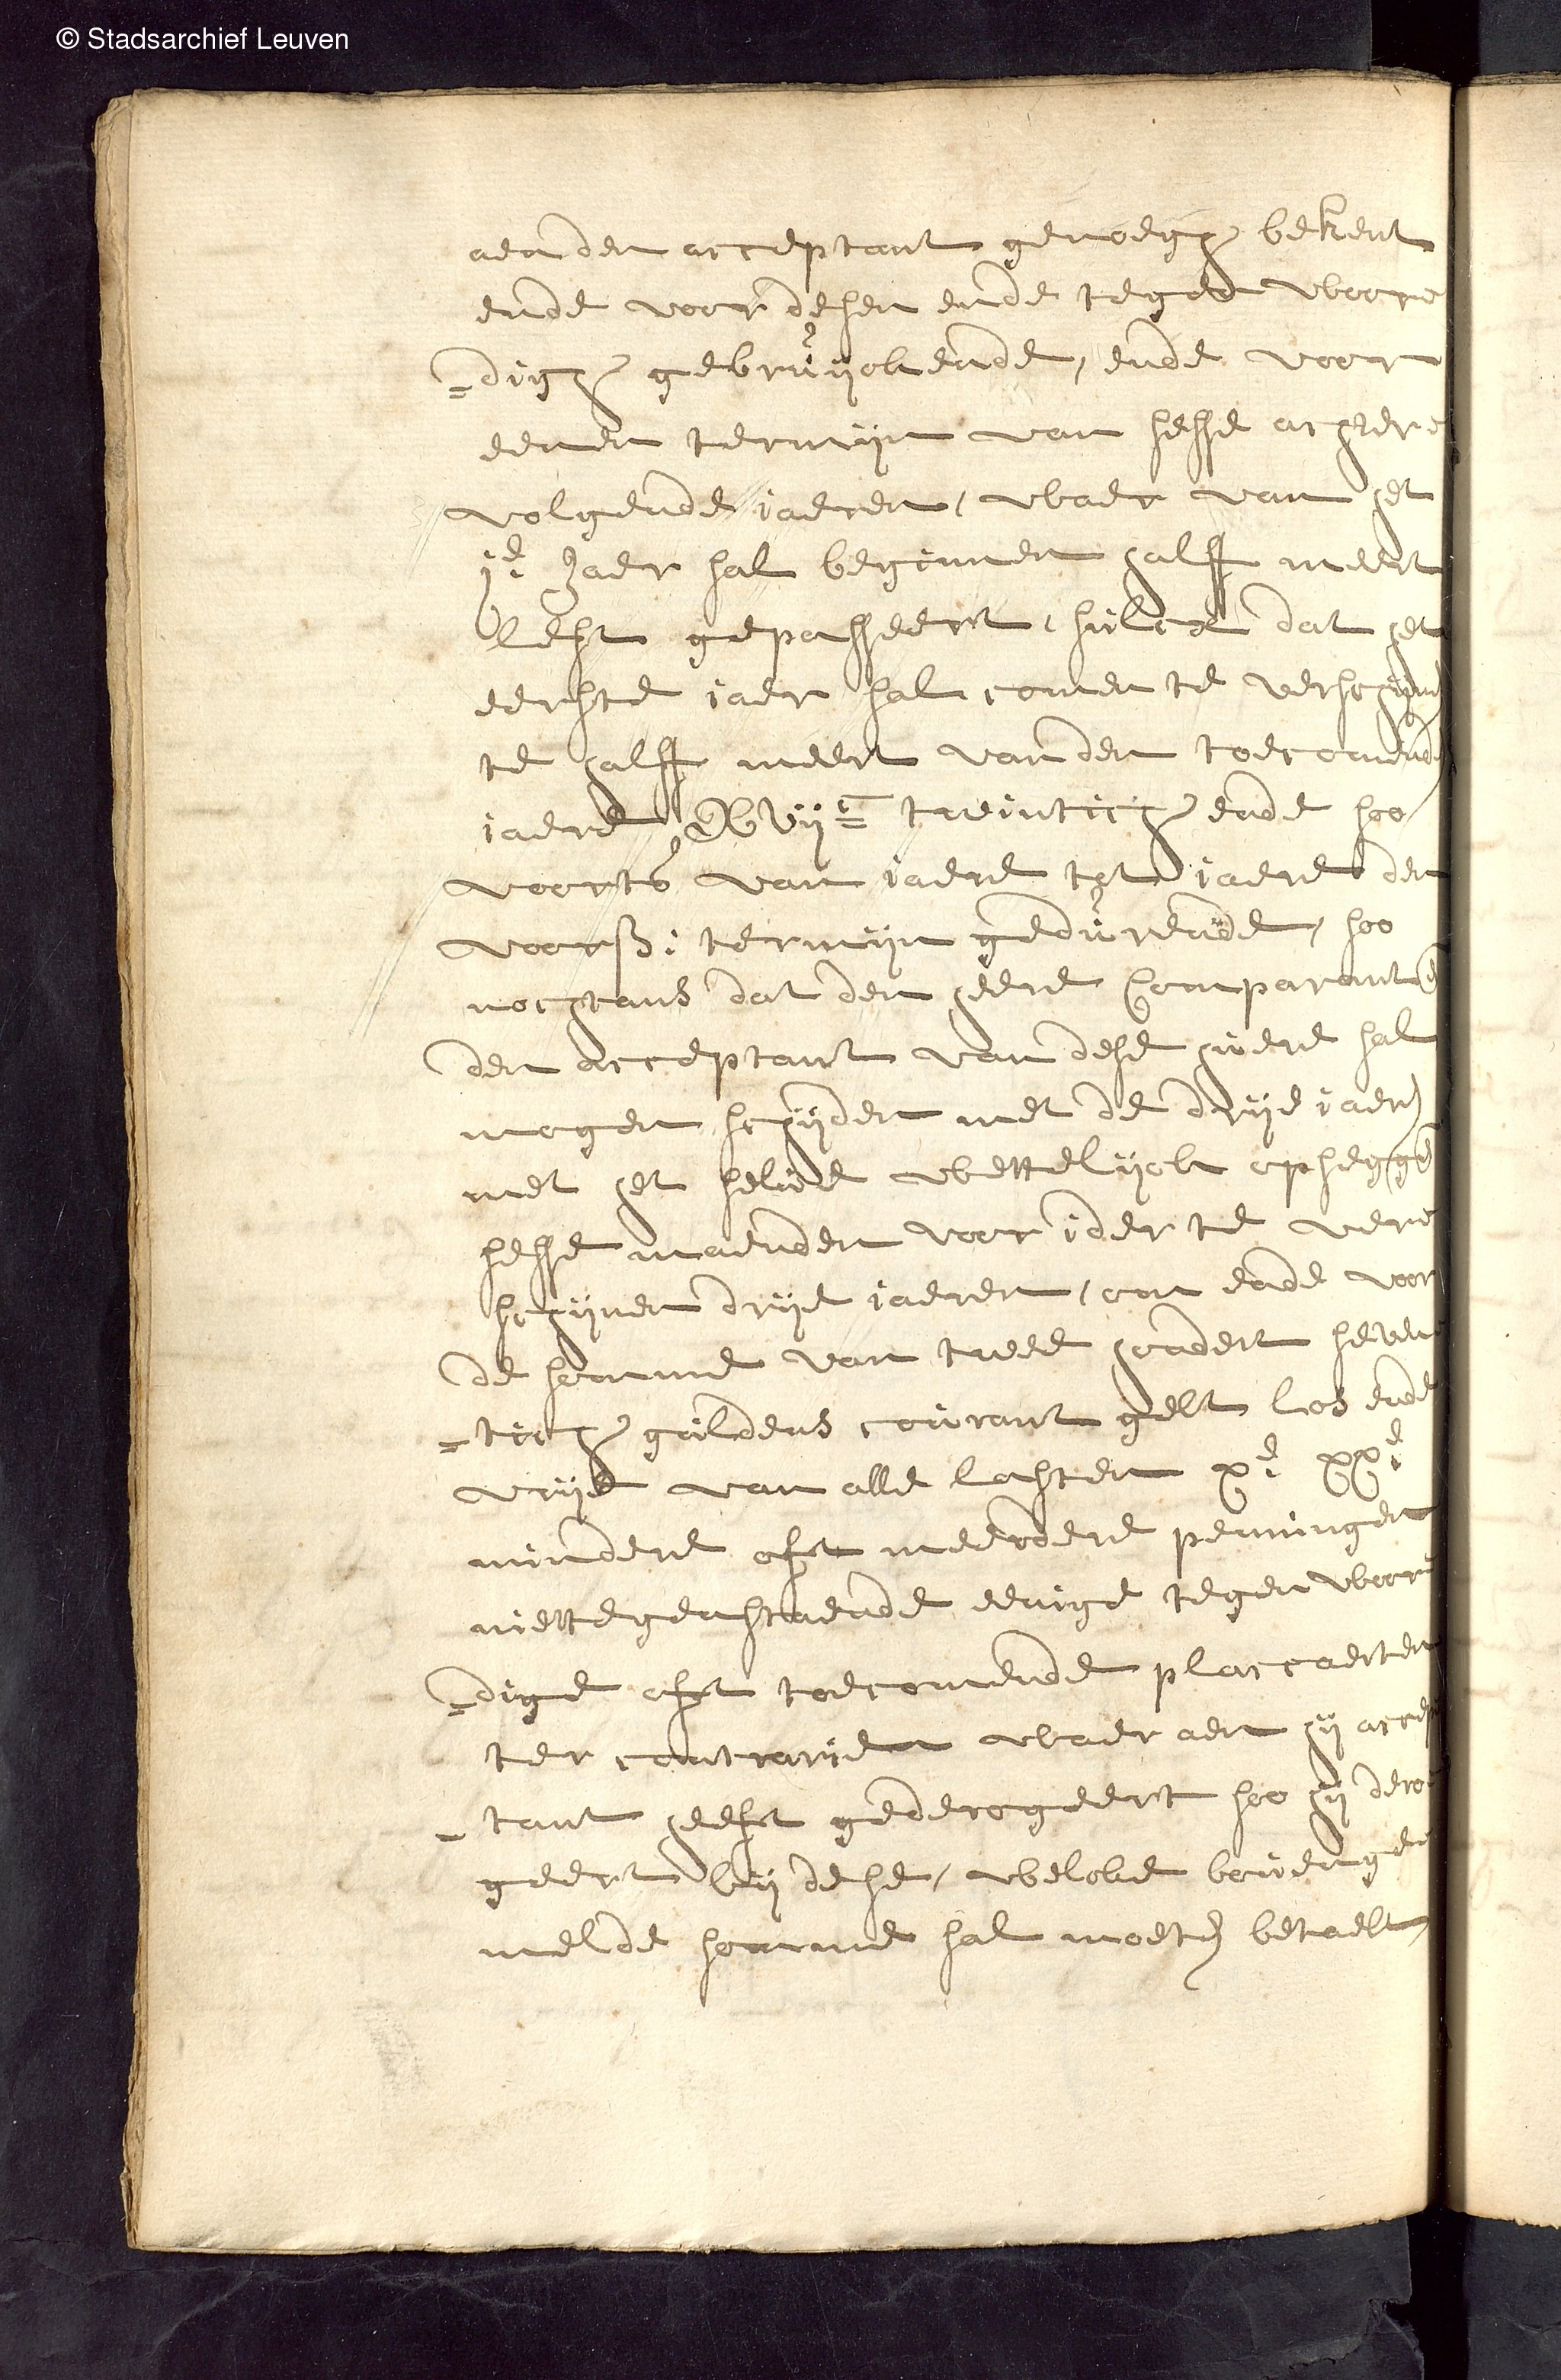 © Stadsarchief Leuven
aen den acceptant genoegh bekent
ende voor desen ende tegen woor-
=digh gebruyckende, ende voor
eenen termijn van sesse achter
volgende iaeren, waer van het
j.e Jaer sal beginnen halff meert
lest gepasseert, sulcx dat het
eerste iaer sal comen te verschynen
te halff meert vanden toecomende
iaere XVIJ.c twintich ende soo
voorts van iaere tot iaere den
voors: termijn geduerende, soo
nochtans dat den heere Comparant en
den acceptant van dese huere sal
mogen scheyden met de drye iaeren
met het selve wettelyck opseggen
sesse maenden voor ider te ver-
schynen drye iaeren, om ende voor
de somme van twee hondert seven-
=tich guldens courant gelt los ende
vrye van alle lasten x.e xx.e
mindere oft meerdere penningen
niettegenstaende eenige tegenwoor-
=dige oft toecomende placcaerten
ter contrarien waer aen hy accep
-tant heeft gederogeert soo hy dero-
geert by dese, welcke bovenge
melde somme sal moeten betaelt